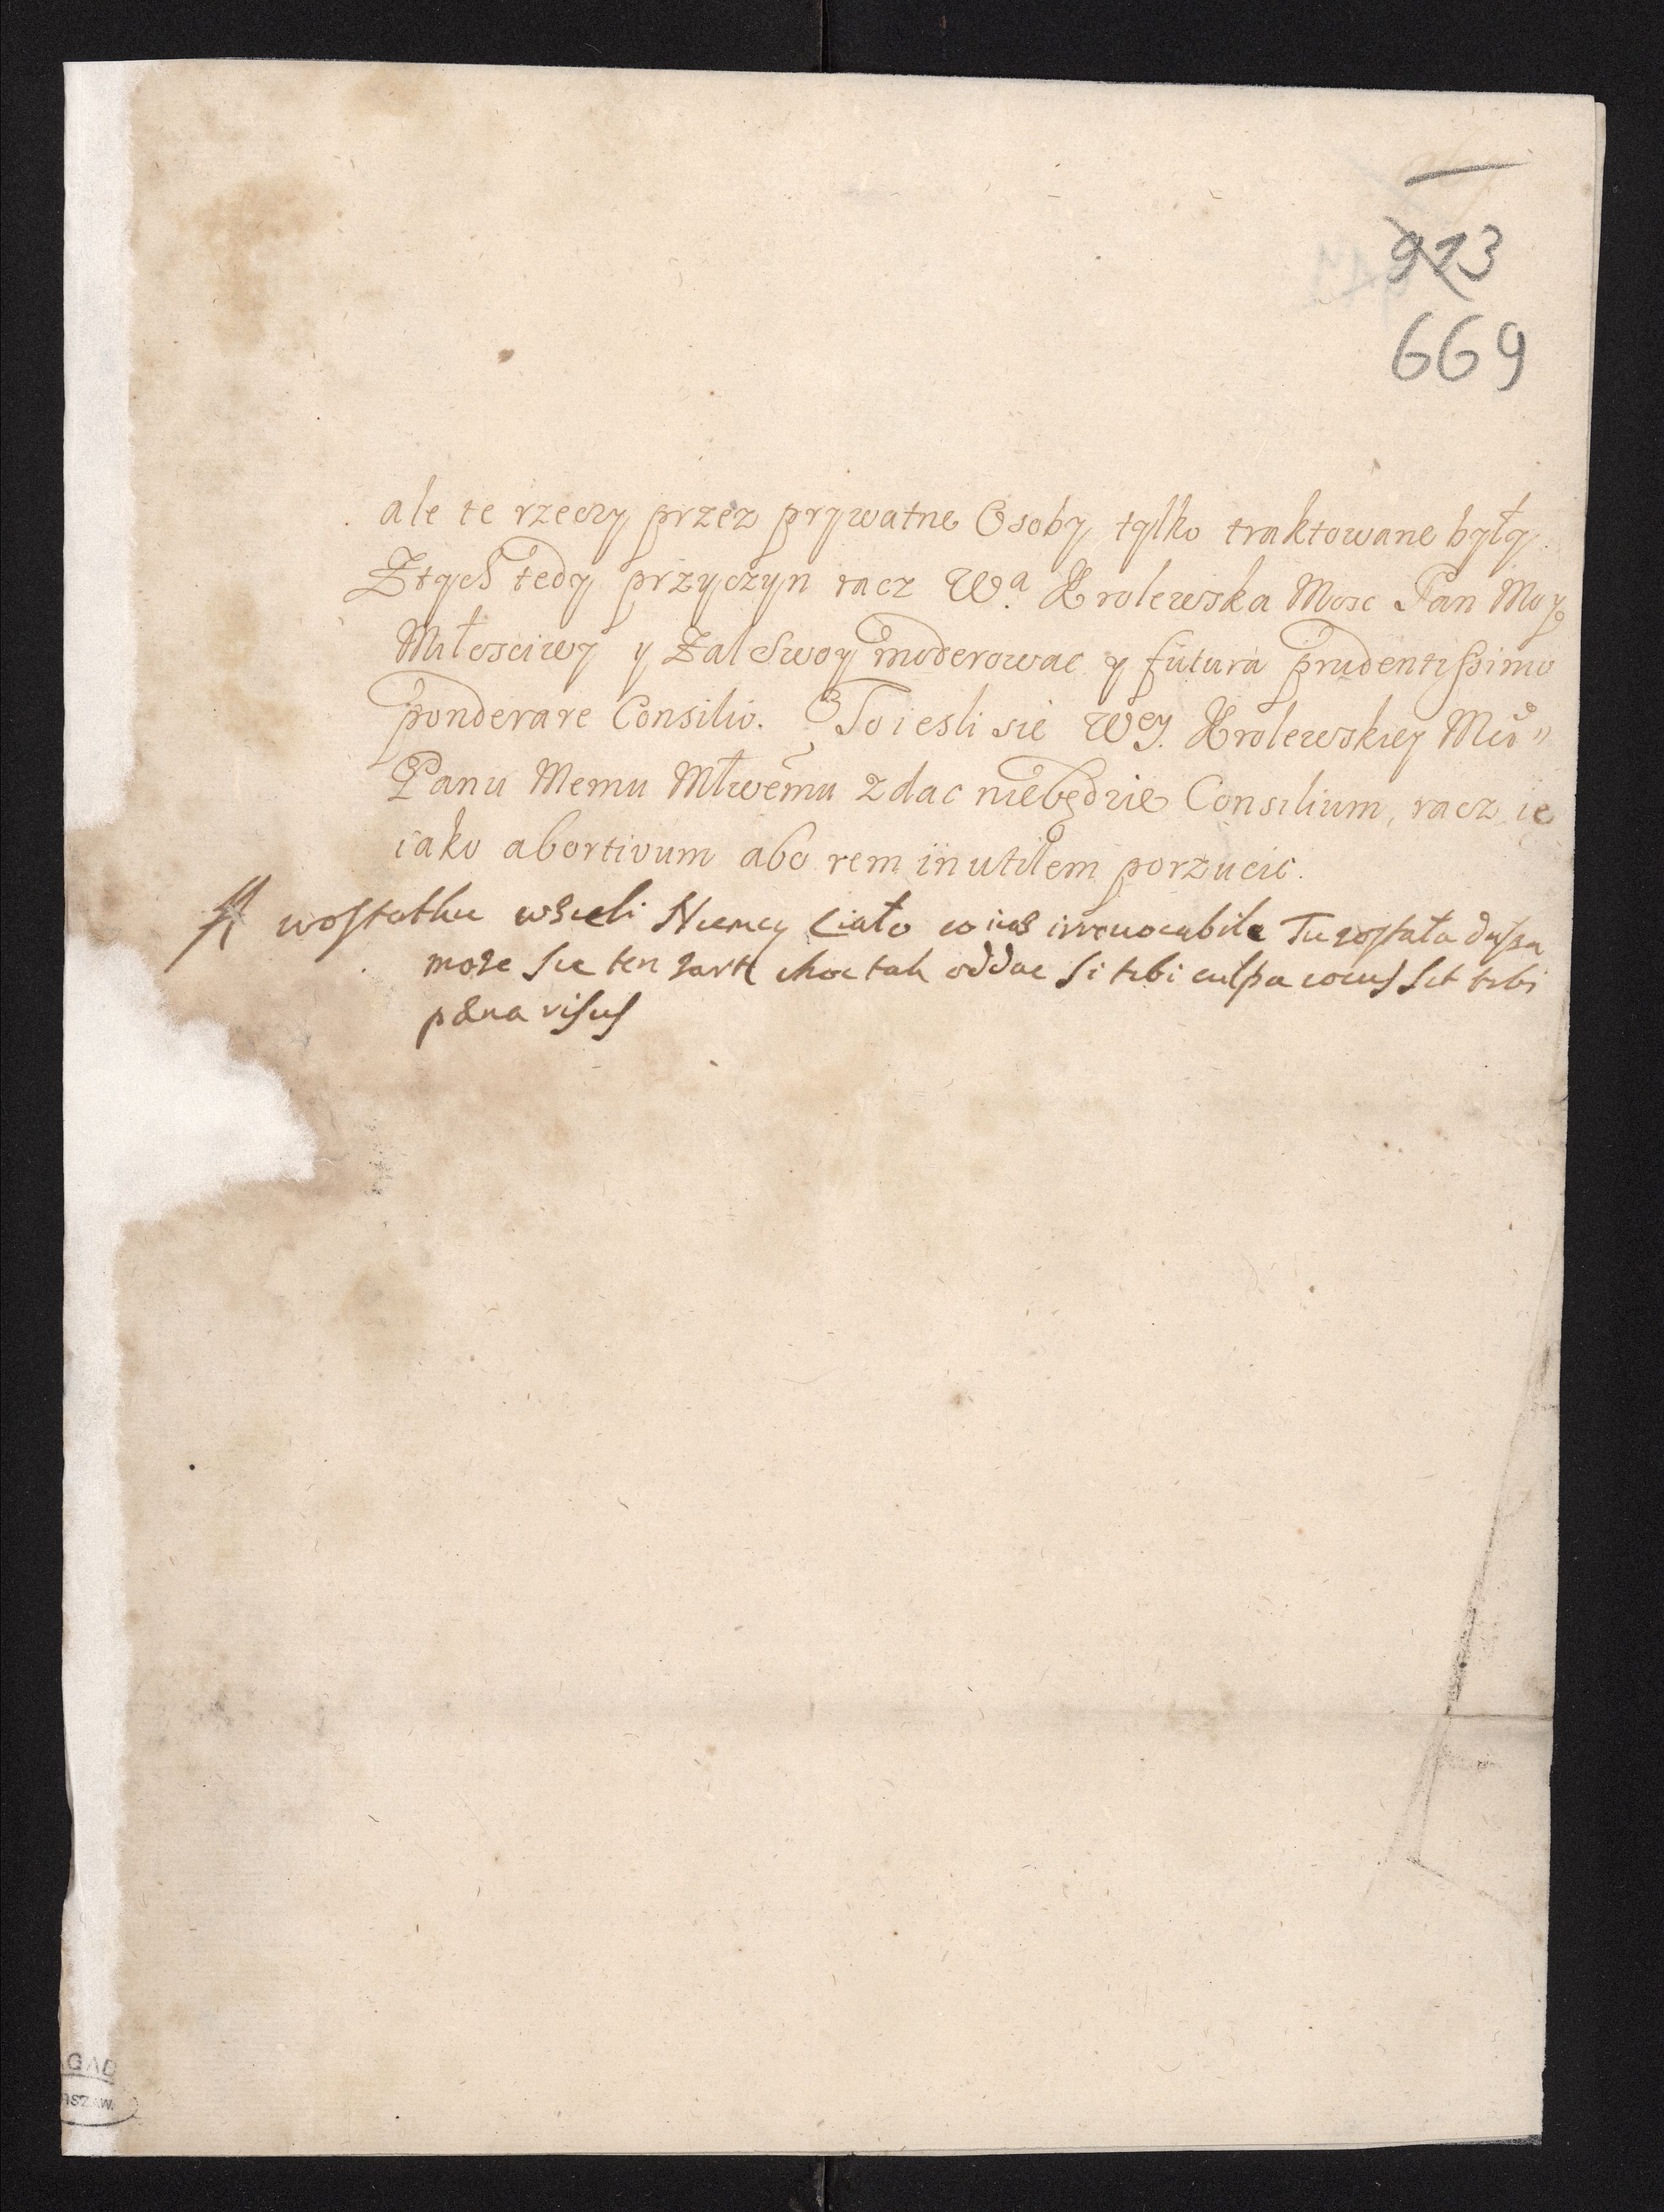 913
669
ale te rzeczy przez prywatne Osoby tylko traktowane były.
Ztych tedy przyczyn racz W.a Krolewska Mosc Pan Moy
Miłosciwy y Zal Swoy moderowac y futura prudentissimo
ponderare Consilio. To iesli sie Wey. Krolewskiey Mci
Panu Memu Młwemu zdac niebędzie Consilium, racz ie
iako abortivum abo rem inutilem porzucic.
A wostatku wzieli Niemcy Ciało co iusz irreuocabile Tu została dusza
moze sie ten zart choc tak oddac si tibi culpa iocus sit tibi
pœna risus
AGAD